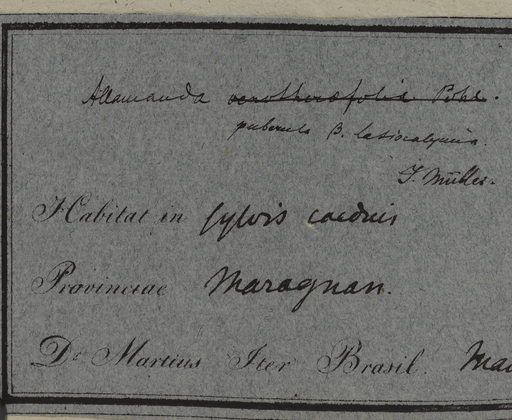 Allamanda oenotheraefolia Pohl.
puberula β. lasiocalycina.
J. Müller.
Habitat in sylvis caeduis
Provinciae Maragnan.
Dr. Martius Iter Brasil.